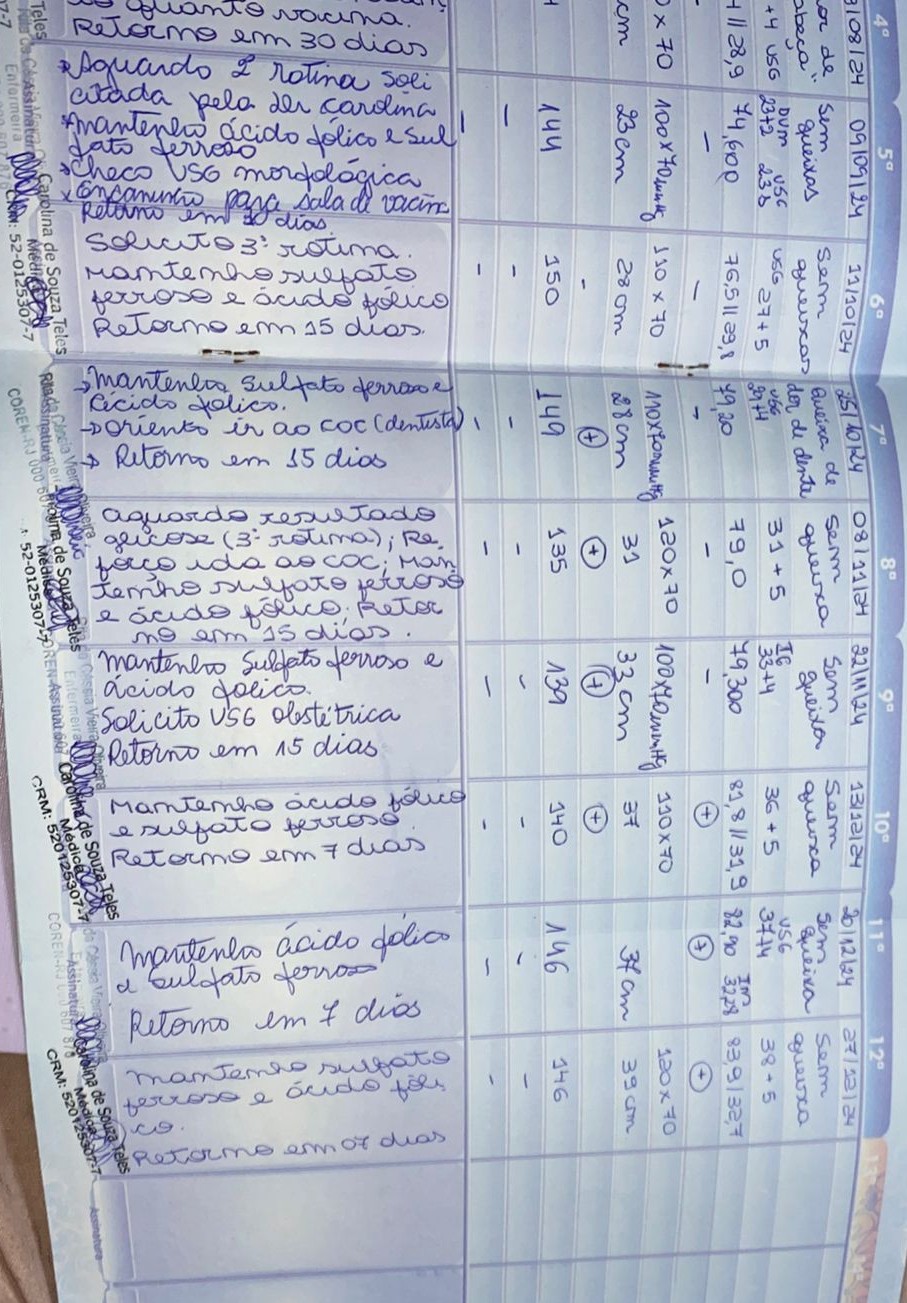 4º
/08/24
or de
abeça".
+4 USG
28,9
x 70
cm
quanto vacina.
Retorno em 30 dias
5º
09/09/24
Sem
queixas
DUM USG
23+2 23
74,600
-
100x70mmHg
23cm
144
-
-
Aguardo 2 rotina soli
citada pela Dra Carolina
mantenho ácido fólico e sul
fato ferroso
Checo USG morfológica
para sala de vacina
Retorno em dias
6º
11/10/24
Sem
queixas
USG 27+5
76,5//29,8
-
110 x 70
28cm
-
150
-
-
Solicito 3ª rotina.
Mantenho sulfato
ferroso e ácido fólico
Retorno em 15 dias.
7º
25/10/24
Queixa de
dor de dente
USG
29+4
79,20
-
110x70mmHg
28cm
+
149
-
-
→ Mantenho sulfato ferroso e
ácido fólico.
→ Oriento ir ao COC (dentista)
→ Retorno em 15 dias
8º
08/11/24
Sem
queixa
31+5
79,0
-
120x70
31
+
135
-
-
aguardo resultado
glicose (3ª rotina); Re
forço ida ao COC; Man
tenho sulfato ferroso
e ácido fólico. Retor
no em 15 dias.
9º
22/11/24
Sem
queixa
IG
33+4
79,300
-
100x70mmHg
33cm
+
139
-
-
Mantenho sulfato ferroso e
ácido fólico.
Solicito USG obstétrica
Retorno em 15 dias
10º
13/12/24
Sem
queixa
36+5
81,8//31,9
+
110x70
37
+
140
-
-
Mantenho ácido fólico
e sulfato ferroso.
Retorno em 7 dias
11º
20/12/24
Sem
queixa
USG
37+4
82,90
+
37cm
146
-
-
Mantenho ácido fólico
e sulfato ferroso
Retorno em 7 dias
12º
27/12/24
Sem
queixa
38+5
83,9/32,7
+
120x70
39cm
146
-
-
mantenho sulfato
ferroso e ácido fóli
co.
Retorno em 07 dias
Carolina de Souza Teles
Médica
CRM: 52-0125307-7
Enfermeira
COREN-RJ
Carolina de Souza Teles
Médica
52-0125307-7
Carolina de Souza Teles
Médica
CRM: 520125307-7
Carolina de Souza Teles
Médica
CRM: 520125307-7
Assinatura